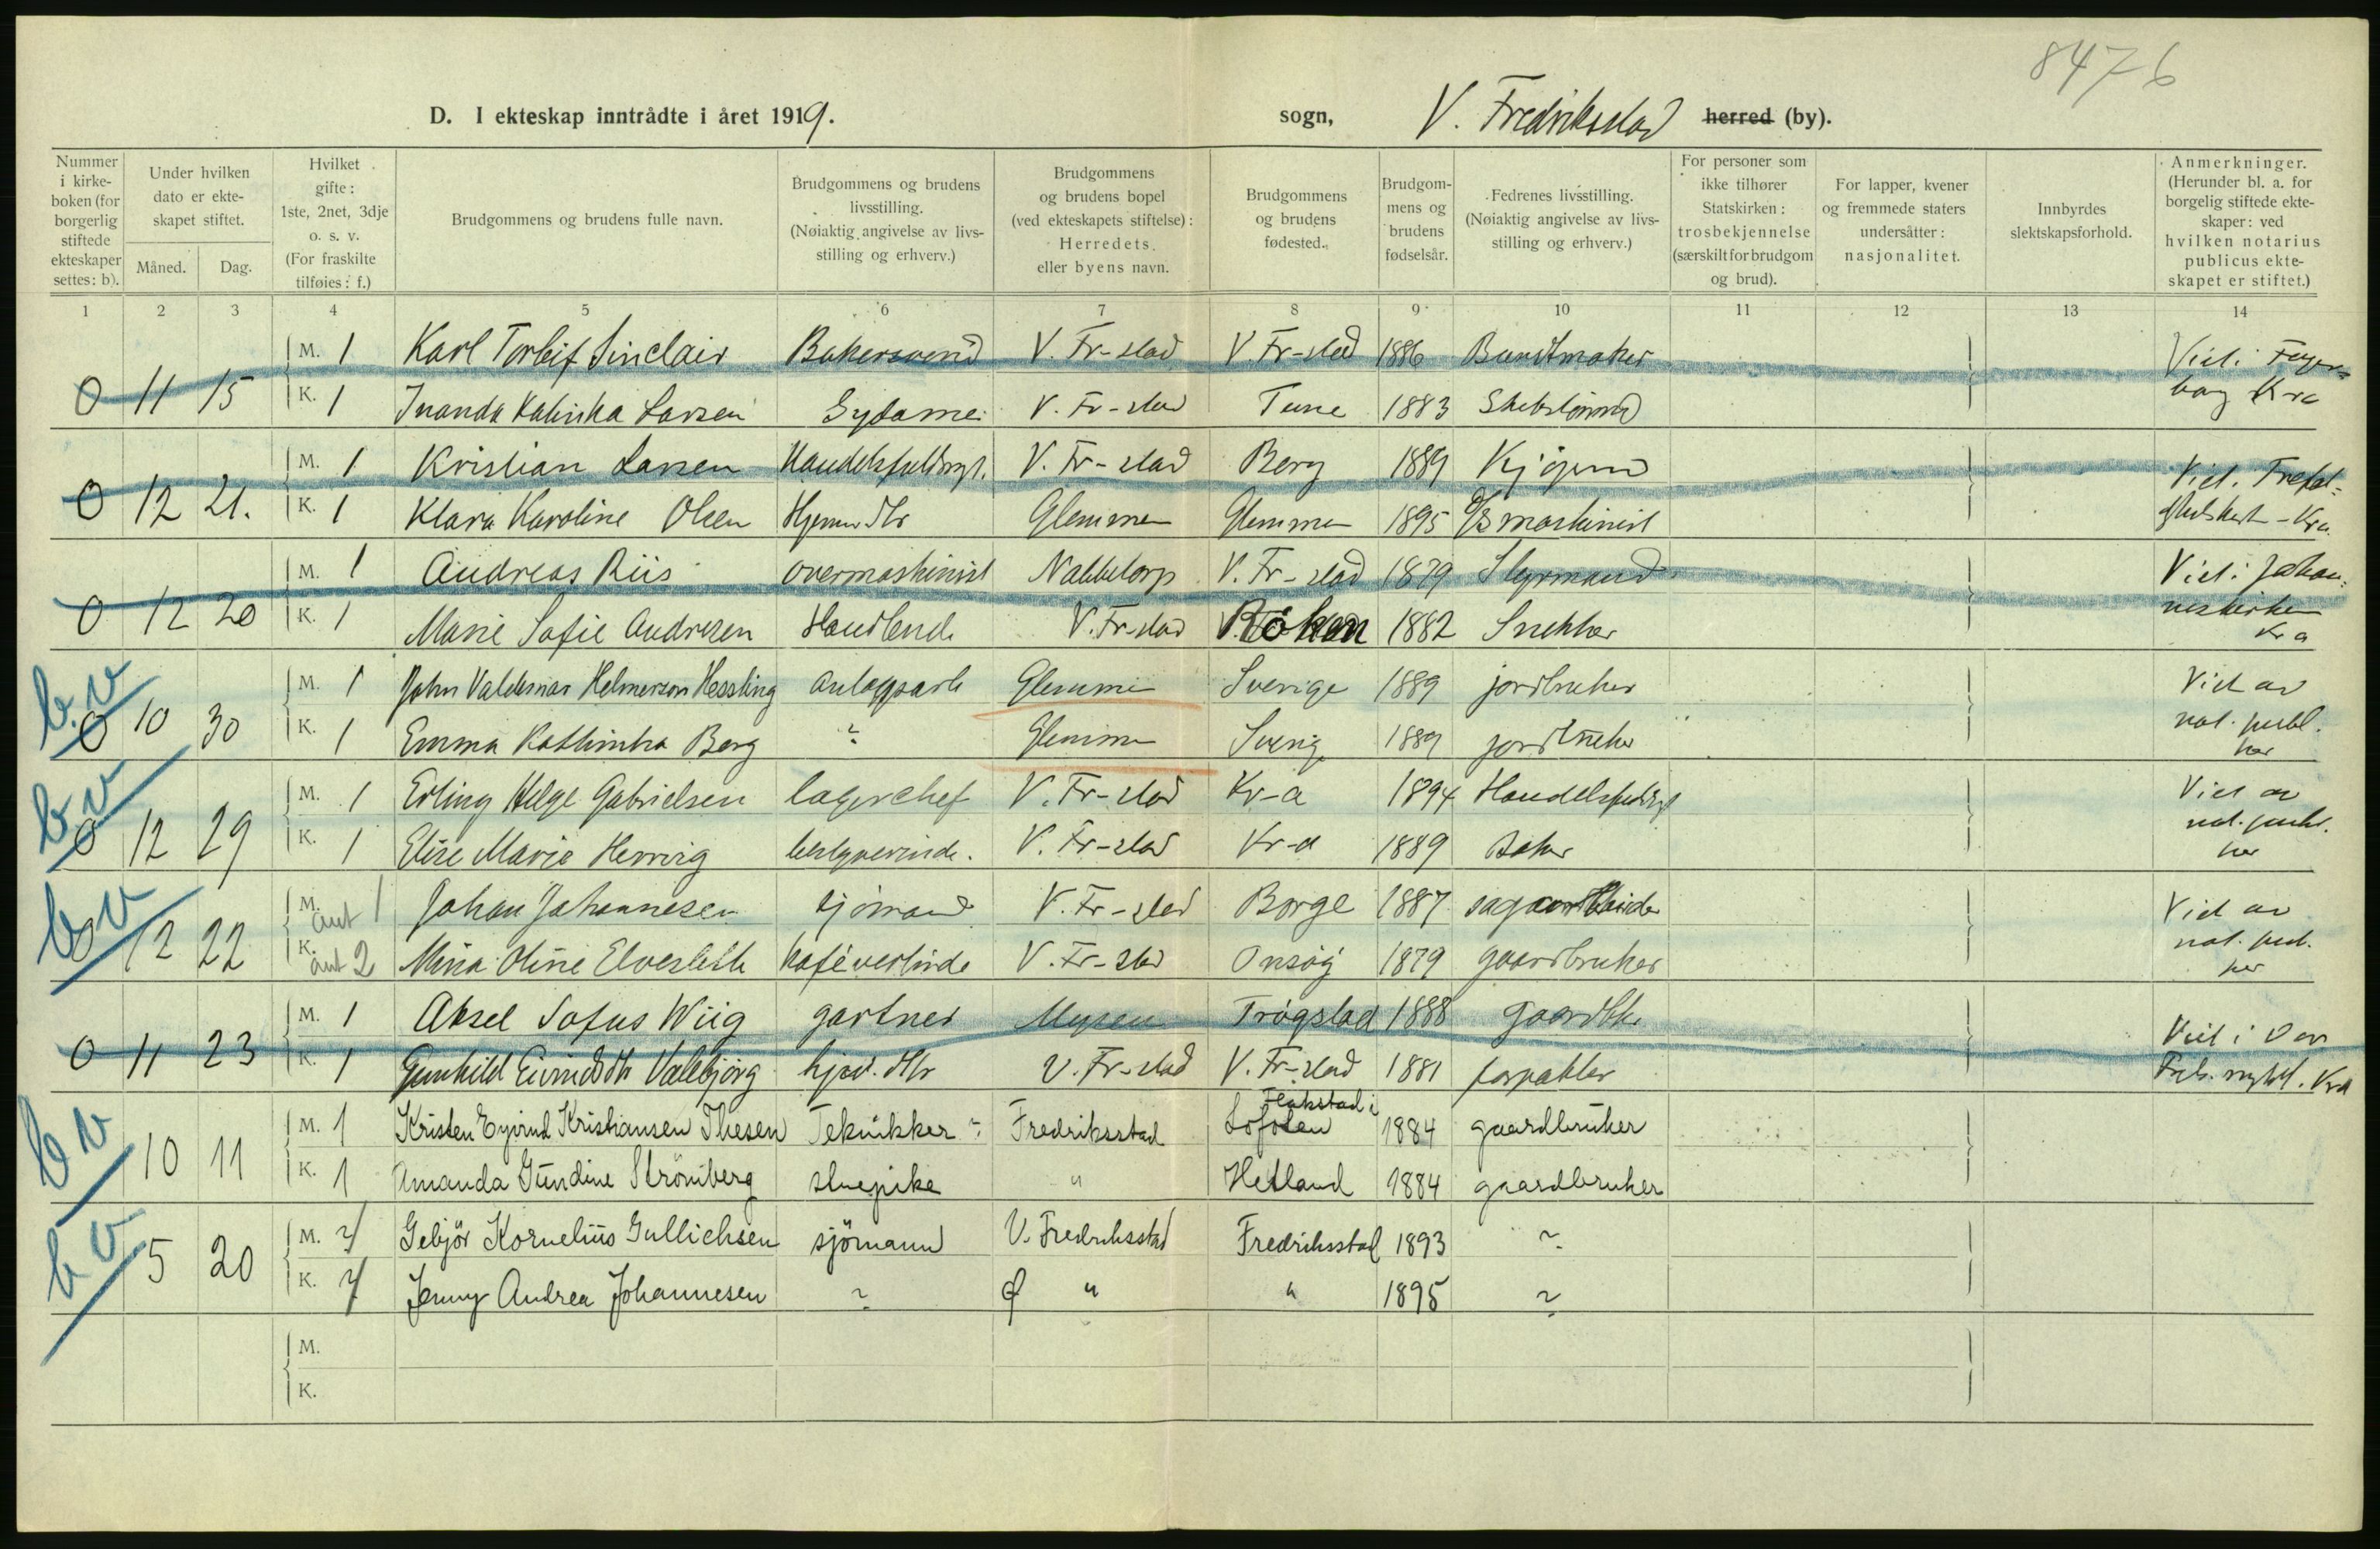 8476
D. I ekteskap inntrådte i året 1919. sogn, V. Fredriksstad herred (by).
Nummer i kirkeboken (for borgerlig stiftede ekteskaper settes: b).
Under hvilken dato er ekteskapet stiftet.
Måned. Dag.
Hvilket gifte: 1ste, 2net, 3dje o. s. v. (For fraskilte tilføies: f.)
Brudgommens og brudens fulle navn.
Brudgommens og brudens livsstilling. (Nøiaktig angivelse av livsstilling og erhverv.)
Brudgommens og brudens bopel (ved ekteskapets stiftelse): Herredets eller byens navn.
Brudgommens og brudens fødested.
Brudgommens og brudens fødselsår.
Fedrenes livsstilling. (Nøiaktig angivelse av livsstilling og erhverv.)
For personer som ikke tilhører Statskirken: trosbekjennelse (særskilt for brudgom og brud).
For lapper, kvener og fremmede staters undersåtter: nasjonalitet.
Innbyrdes slektskapsforhold.
Anmerkninger. (Herunder bl. a. for borgelig stiftede ekteskaper: ved hvilken notarius publicus ekteskapet er stiftet.)
1 2 3 4 5 6 7 8 9 10 11 12 13 14
M. 1 Karl Torleif Sinclair Bakersvend V. Fr-stad V. Fr-stad 1886 Buntmaker Viet i
0 11 15 K. 1 Inanda Katinka Larsen Sydame V. Fr-stad Tune 1883 Kra
M. 1 Kristian Larsen V. Fr-stad Berg 1889 Viet.
0 12 21. K. 1 Klara Karoline Olsen Hjemme dtr Glemmen Glemmen 1895 maskinist Kra.
M. 1 Andreas Riis overmaskinist Nabbetorp V. Fr-stad 1879 Styrmand Viet i Johan-
0 12 20 K. 1 Marie Sofie Andresen Handlende V. Fr-stad Röken 1882 Snekker neskirken Kra
b.v M. 1 John Valdemar Helmerson Hessling anlægsarb Glemmen Sverige 1889 jordbruker Viet av
0 10 30 K. 1 Emma Kathinka Berg ? Glemmen Sverig 1889 jordbruker not. publ. her
b v M. 1 Erling Helge Gabrielsen lagerchef V. Fr-stad Kr-a 1894 Viet av
0 12 29 K. 1 Elise Marie Herrerig bestyrerinde. V. Fr-stad Kr-a 1889 Baker not. publ. her
b v M. ant 1 Johan Johannesen sjömand V. Fr-stad Borge 1887 sagarbeider Viet av
0 12 22 K. ant 2 Mina Oline Elvesleth kaféverlinde V. Fr-stad Onsöy 1879 gaardbruker not. pub. her
M. 1 Aksel Sofus Wiig gartner Mysen Trögstad 1888 gaardbr Viet i Vor
0 11 23 K. 1 Gunhild Eivindsdtr Valebjörg hjem. dtr V. Fr-stad V. Fr-stad 1881 forpakter Kra
b v M. 1 Kristen Eyvind Kristiansen Thesen Teknikker ? Fredriksstad Flakstad i Lofoten 1884 gaardbruker
10 11 K. 1 Amanda Gundine Strömberg stuepike " Hetland 1884 gaardbruker
b v M. ? Gebjör Kornelius Gullichsen sjömann V. Fredriksstad Fredriksstad 1893 ?
5 20 K. ? Jenny Andrea Johannesen ? " " 1895 ?
M.
K.